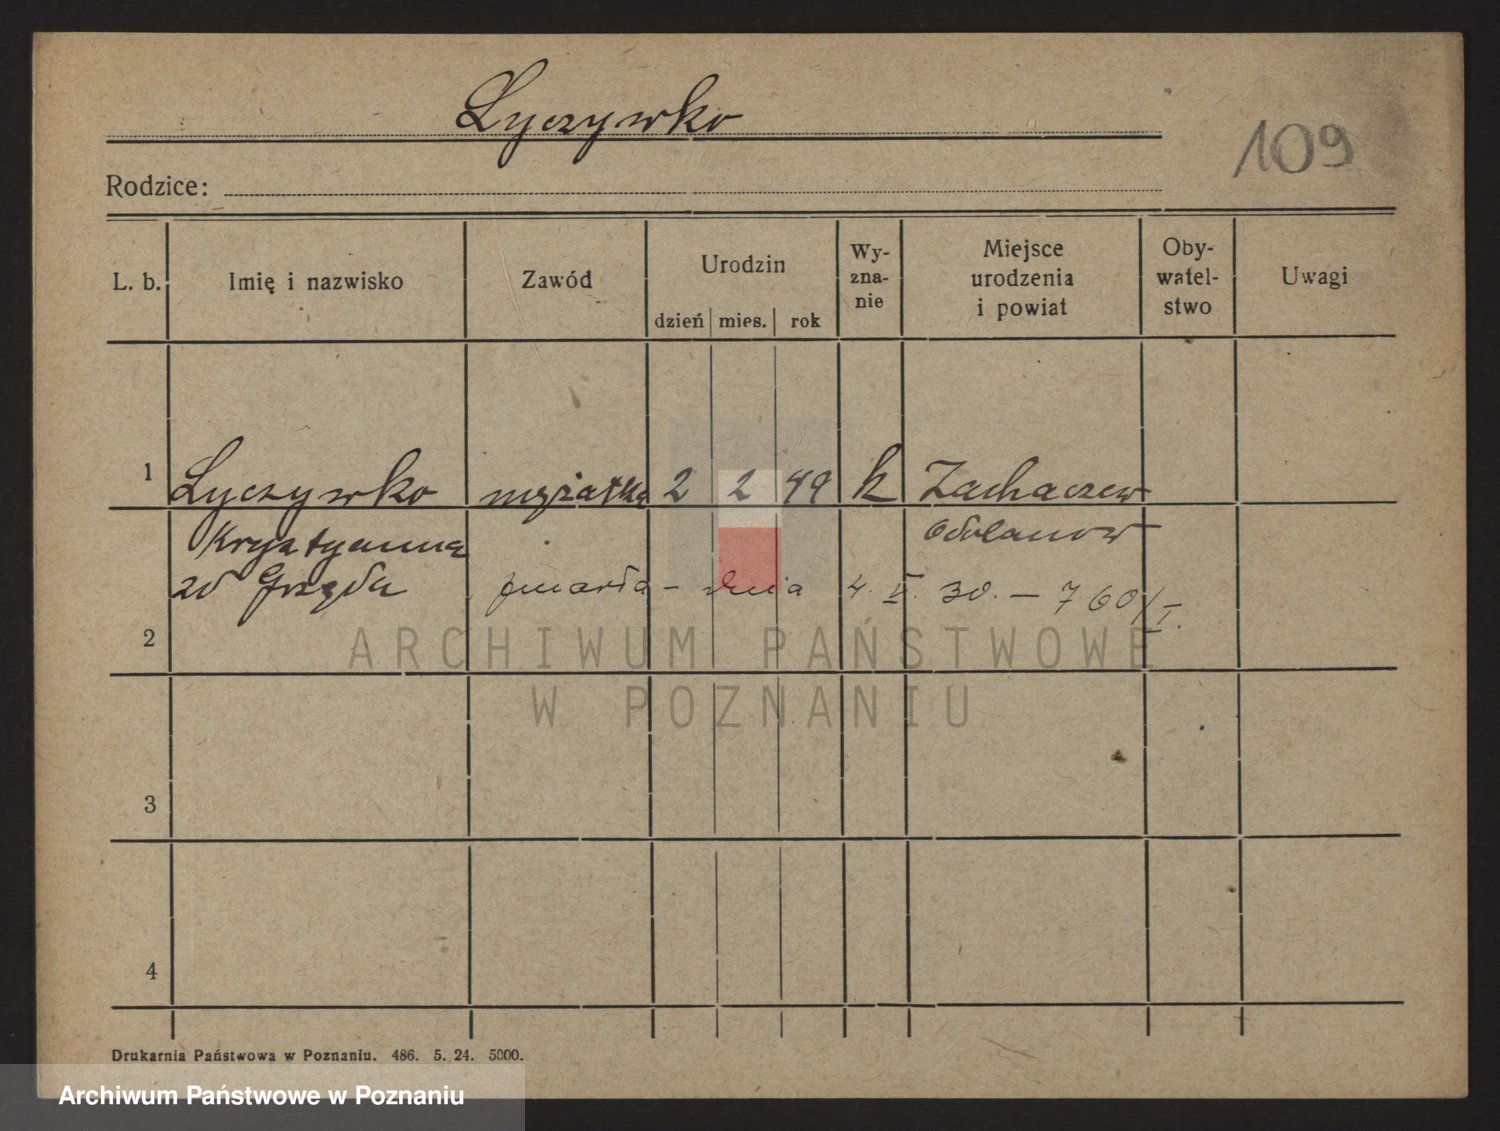 Łyczywko
109
Rodzice:
L. b. Imię i nazwisko Zawód Urodzin dzień mies. rok Wy-zna-nie Miejsce urodzenia i powiat Oby-watel-stwo Uwagi
1 Łyczywko mężatka 2 2 49 k Zachaczew
Krystyanna Odolanow
zd Grzęda zmarła - dnia 4. V. 30. - 760/I.
2
3
4
Drukarnia Państwowa w Poznaniu. 486. 5. 24. 5000.
ARCHIWUM PAŃSTWOWE
W POZNANIU
Archiwum Państwowe w Poznaniu